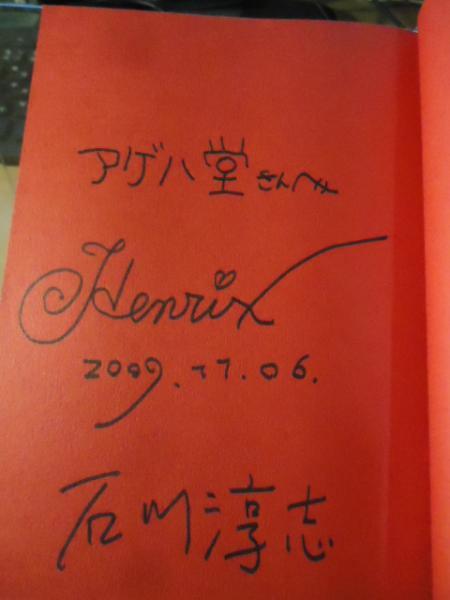 アゲハ堂さんへ
Henrix
2009.11.06.
石川淳志